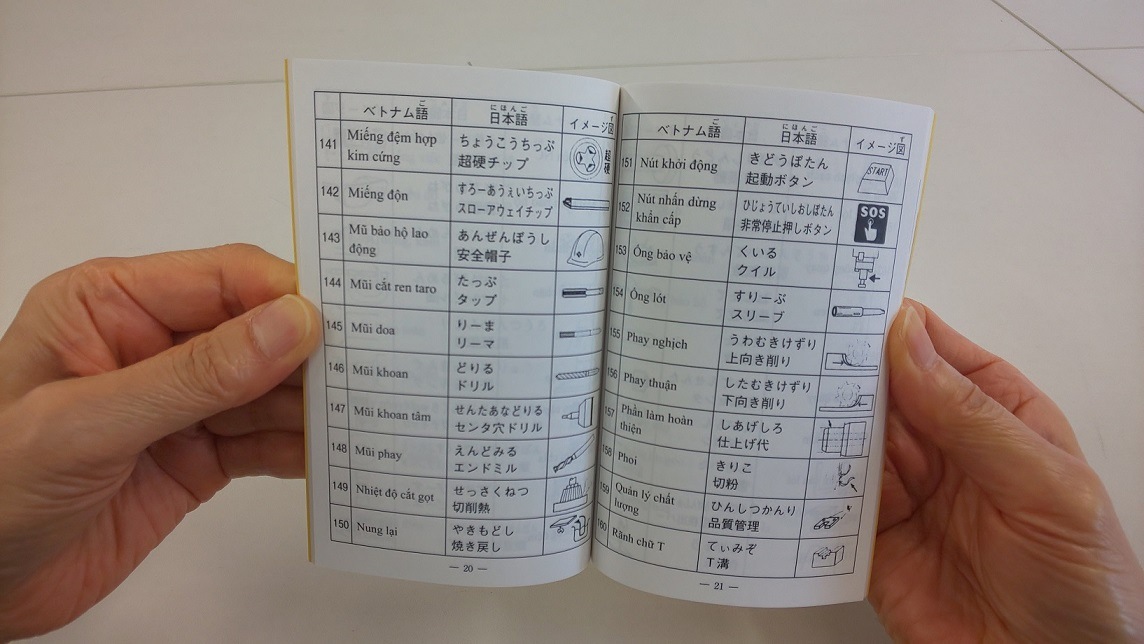 ベトナム語
ご
日本語
にほんご
イメージ図
ず
141
Miếng đệm hợp
kim cứng
ちょうこうちっぷ
超硬チップ
超
硬
142
Miếng độn
すろーあうぇいちっぷ
スローアウェイチップ
143
Mũ bảo hộ lao
động
あんぜんぼうし
安全帽子
144
Mũi cắt ren taro
たっぷ
タップ
145
Mũi doa
りーま
リーマ
146
Mũi khoan
どりる
ドリル
147
Mũi khoan tâm
せんたあなどりる
センタ穴ドリル
148
Mũi phay
えんどみる
エンドミル
149
Nhiệt độ cắt gọt
せっさくねつ
切削熱
150
Nung lại
やきもどし
焼き戻し
— 20 —
ベトナム語
ご
日本語
にほんご
イメージ図
ず
151
Nút khởi động
きどうぼたん
起動ボタン
START
152
Nút nhấn dừng
khẩn cấp
ひじょうていしおしぼたん
非常停止押しボタン
SOS
153
Ống bảo vệ
くいる
クイル
154
Ống lót
すりーぶ
スリーブ
155
Phay nghịch
うわむきけずり
上向き削り
156
Phay thuận
したむきけずり
下向き削り
157
Phần làm hoàn
thiện
しあげしろ
仕上げ代
158
Phoi
きりこ
切粉
159
Quản lý chất
lượng
ひんしつかんり
品質管理
160
Rãnh chữ T
てぃみぞ
T溝
— 21 —